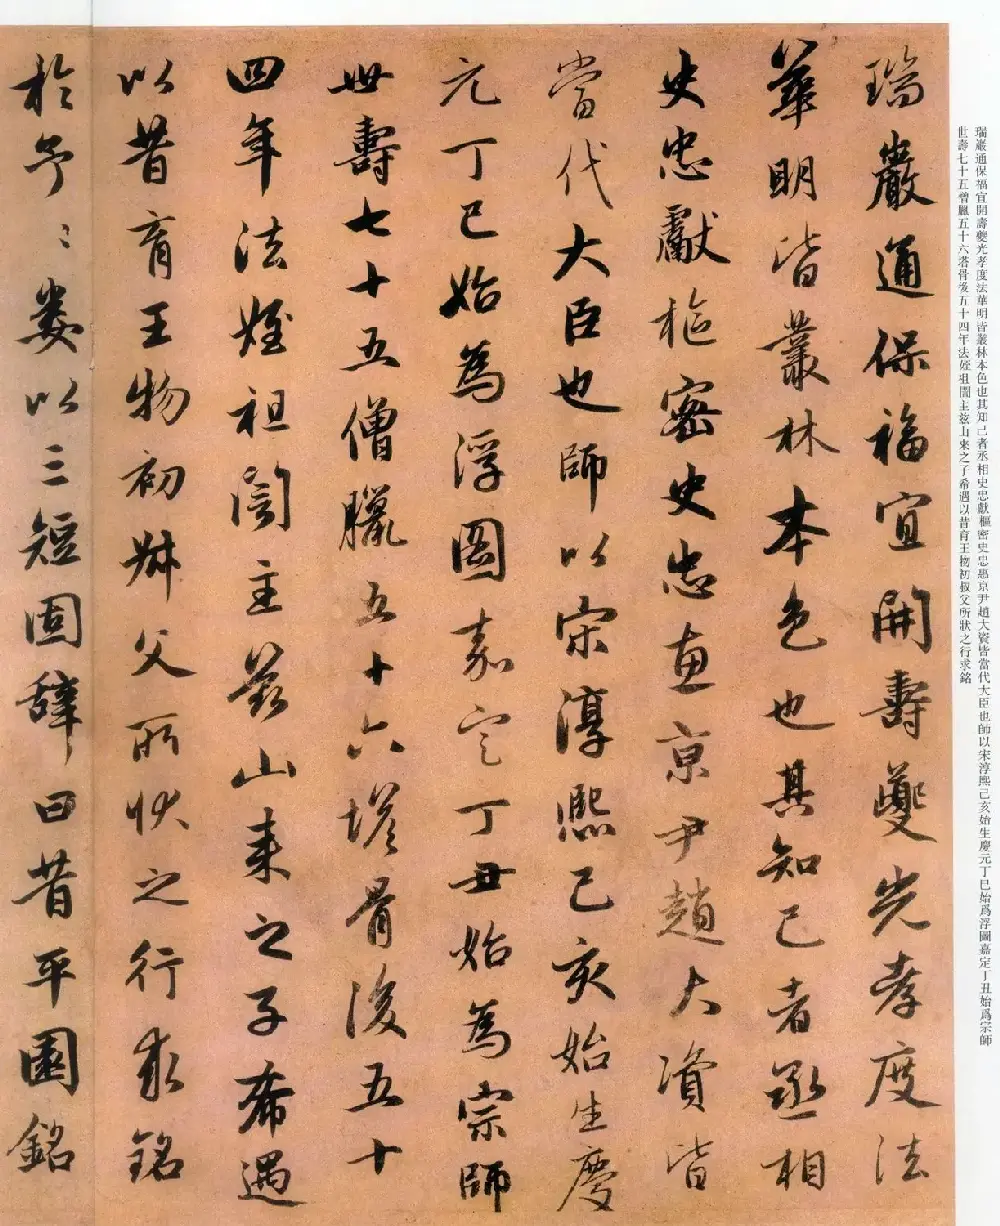 瑞巖通保福宜開壽夔光孝度法
華明皆叢林本色也其知己者丞相
史忠獻樞密史忠惠京尹趙大資皆
當代大臣也師以宋淳熙己亥始生慶
元丁巳始為浮圖嘉定丁丑始為宗師
世壽七十五僧臘五十六塔骨後五十
四年法姪祖誾主茲山來之子希遇
以昔育王物初叔父所狀之行求銘
於予予婁以三短固辭曰昔平園銘
瑞巖通保福宜開壽夔光孝度法華明皆叢林本色也其知己者丞相史忠獻樞密史忠惠京尹趙大資皆當代大臣也師以宋淳熙己亥始生慶元丁巳始爲浮圖嘉定丁丑始爲宗師
世壽七十五僧臘五十六塔骨後五十四年法姪祖誾主茲山來之子希遇以昔育王物初叔父所狀之行求銘